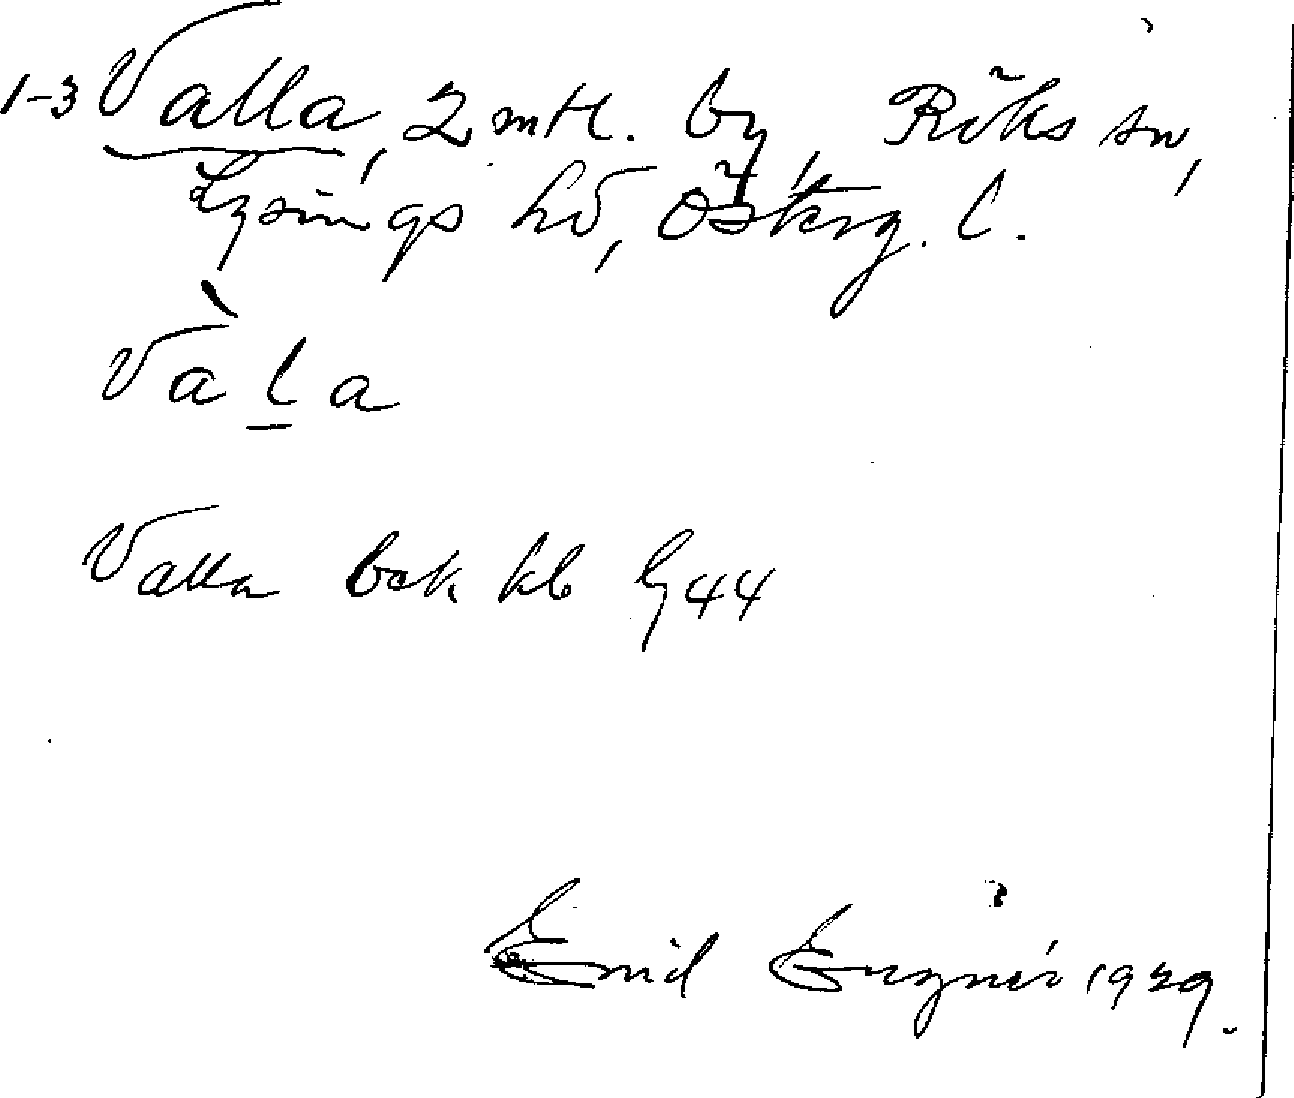 1-3 Valla, 2 mtl. by, Röks sn,
Lysings hd, Östkrg. l.
vàla
Valla bek kb G 44
Emil 1929.